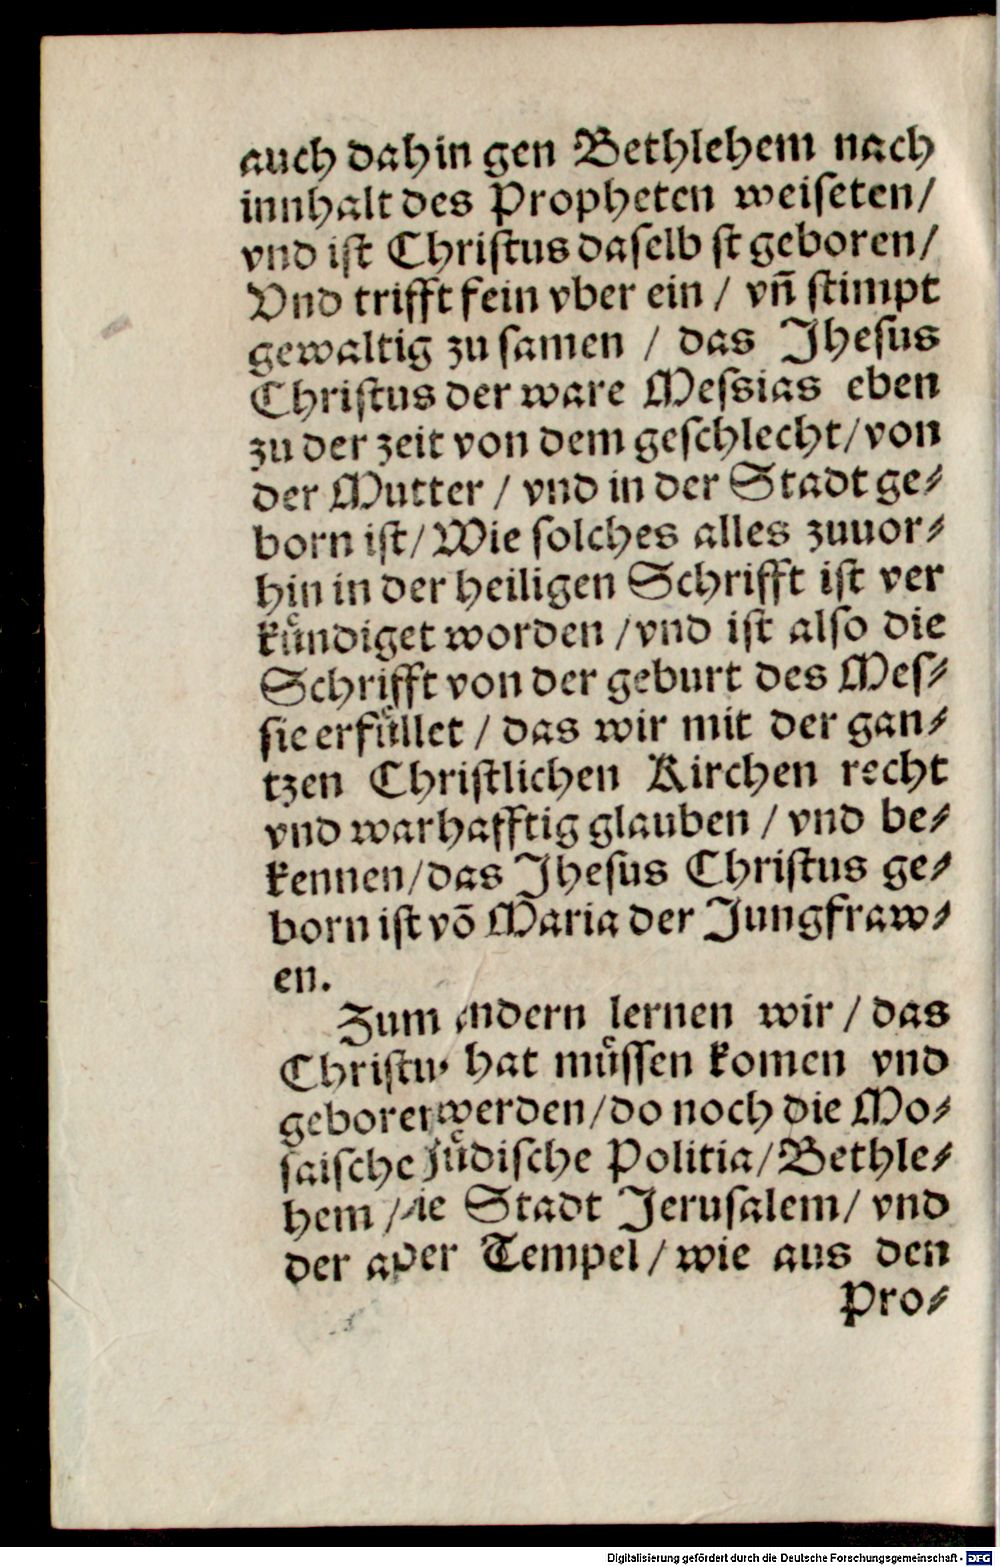 auch dahin gen Bethlehem nach
innhalt des Propheten weiſeten/
vnd iſt Chriſtus daſelb ſt geboren/
Vnd trifft fein vber ein / vn̄ ſtimpt
gewaltig zu ſamen / das Jheſus
Chriſtus der ware Meſsias eben
zu der zeit von dem geſchlecht/von
der Mutter / vnd in der Stadt ge⸗
born iſt/Wie ſolches alles zuuor⸗
hin in der heiligen Schrifft iſt ver
kuͤndiget worden /vnd iſt alſo die
Schrifft von der geburt des Meſ⸗
ſie erfuͤllet / das wir mit der gan⸗
tzen Chriſtlichen Kirchen recht
vnd warhafftig glauben / vnd be⸗
kennen/das Jheſus Chriſtus ge⸗
born iſt võ Maria der Jungfraw⸗
en.
Zum andern lernen wir / das
Chriſtus hat muͤſſen komen vnd
geboren werden/do noch die Mo⸗
ſaiſche Juͤdiſche Politia/Bethle⸗
hem /die Stadt Jeruſalem/ vnd
der ander Tempel/wie aus den
Pro⸗
Digitalisierung gefördert durch die Deutsche Forschungsgemeinschaft - DFG